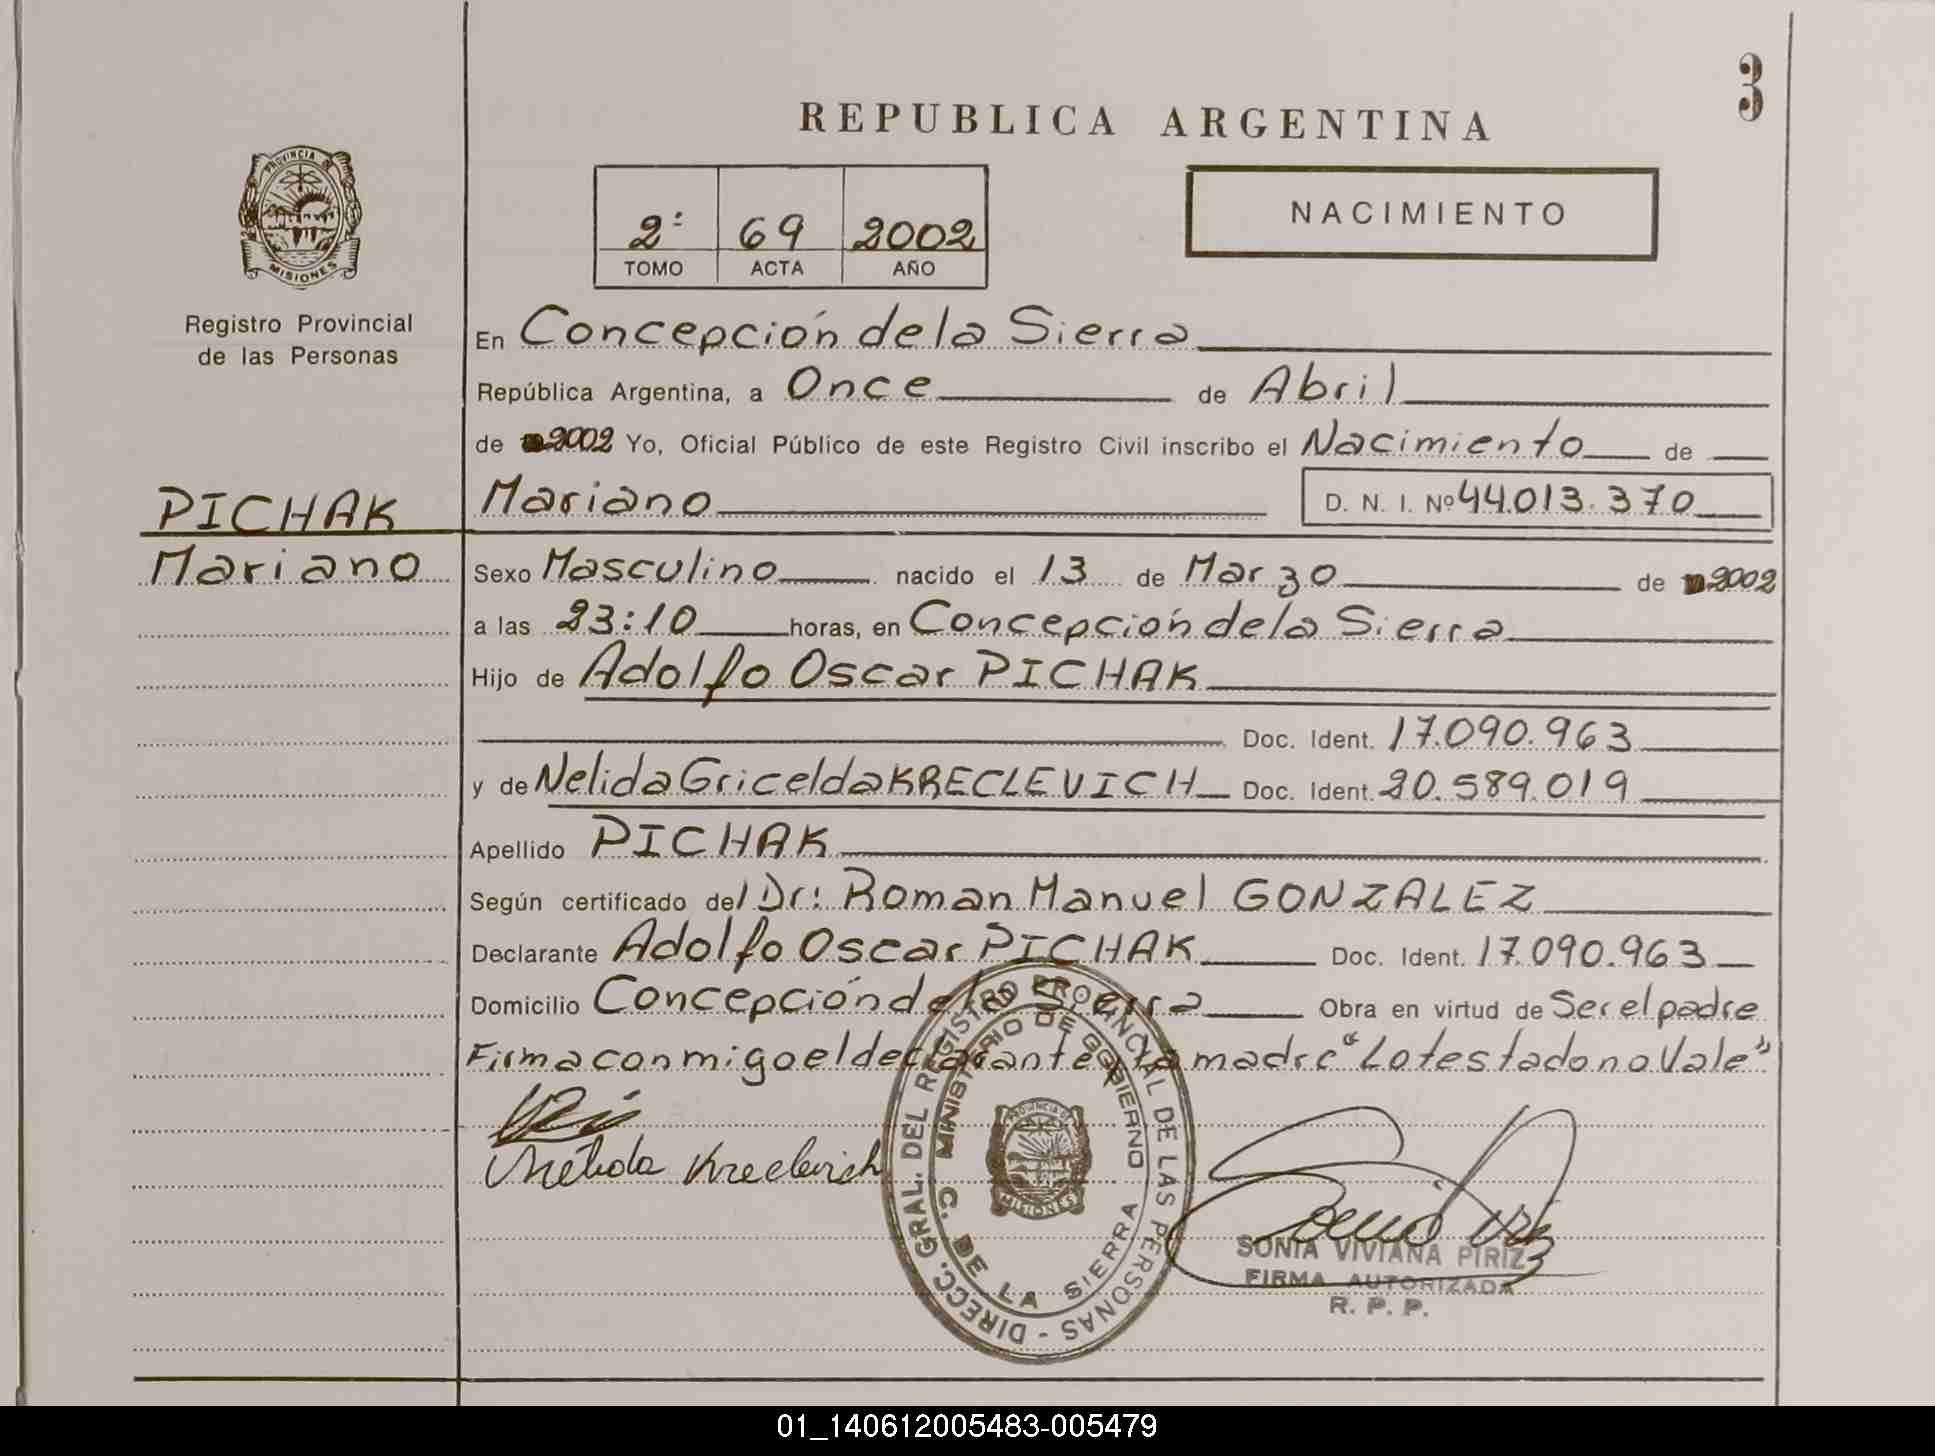 3
REPUBLICA ARGENTINA
PROVINCIA DE
MISIONES
2º 69 2002
TOMO ACTA AÑO
NACIMIENTO
Registro Provincial
de las Personas
En Concepción de la Sierra
República Argentina, a Once de Abril
de 2002 Yo, Oficial Público de este Registro Civil inscribo el Nacimiento de
PICHAK
Mariano
Mariano D. N. I. Nº 44.013.370
Sexo Masculino nacido el 13 de Marzo de 2002
a las 23:10 horas, en Concepción de la Sierra
Hijo de Adolfo Oscar PICHAK
Doc. Ident. 17.090.963
y de Nelida Gricelda KRECLEVICH Doc. Ident. 20.589.019
Apellido PICHAK
Según certificado del Dr: Roman Manuel GONZALEZ
Declarante Adolfo Oscar PICHAK Doc. Ident. 17.090.963
Domicilio Concepción de la Sierra Obra en virtud de Ser el padre
Firma conmigo el declarante y la madre "Lo testado no Vale"
Nélida Kreclevich
DIRECC. GRAL. DEL REGISTRO PROVINCIAL DE LAS PERSONAS -
MINISTERIO DE GOBIERNO
C. DE LA SIERRA
PROVINCIA DE
MISIONES
SONIA VIVIANA PIRIZ
FIRMA AUTORIZADA
R. P. P.
01_140612005483-005479